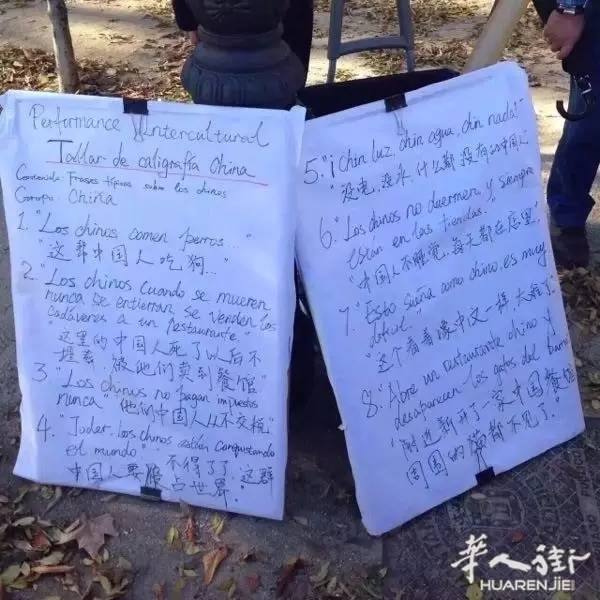 Performance Intercultural
Tallar de caligrafía China
Contenido: Frases típicas sobre los chinos
China
1. "Los chinos comen perros..."
"这群中国人吃狗..."
2. "Los chinos cuando se mueren
nunca se entierran se venden los
cadáveres a un restaurante"
"这里的中国人死了以后不
埋葬,被他们卖到餐馆"
3. "Los chinos no pagan impuestos
nunca" "他们中国人从不交税"
4. "Joder. los chinos están conquistando
el mundo" "不得了了,这群
中国人要占世界."
5. "¡Chin luz, chin agua, chin nada!"
"没电,没水,什么都没有的中国人"
6. "Los chinos no duermen y siempre
están en las tiendas."
"中国人不睡觉,每天都在店里."
7. "Esto suena como chino, es muy
difícil."
"这个看着像中文一样,太难了"
8. "Abre un restaurante chino y
desaparecen los gatos del barrio
"附近新开了一家中国餐馆
周围的猫都不见了."
华人街
HUARENJIE